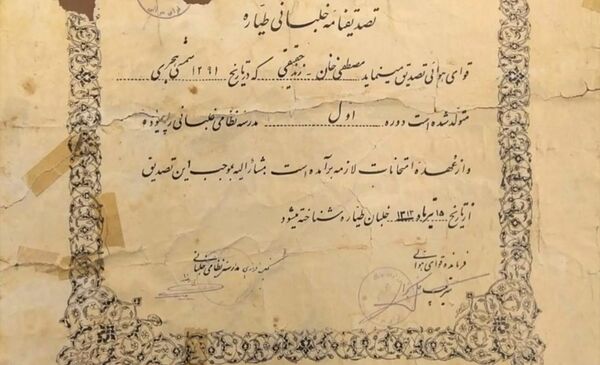 تصدیقنامه خلبانی طیاره
قوای هوائی تصدیق مینماید مصطفی خان - زند حقیقی که در تاریخ ۱۲۹۱ شمسی هجری
متولد شده است دوره اول مدرسه نظامی خلبانی را پیموده
و از عهده امتحانات لازمه برآمده است مشارالیه بموجب این تصدیق
از تاریخ ۱۵ تیر ماه ۱۳۱۳ خلبان طیاره شناخته میشود
فرمانده قوای هوائی مدرسه نظامی خلبانی
سرتیپ